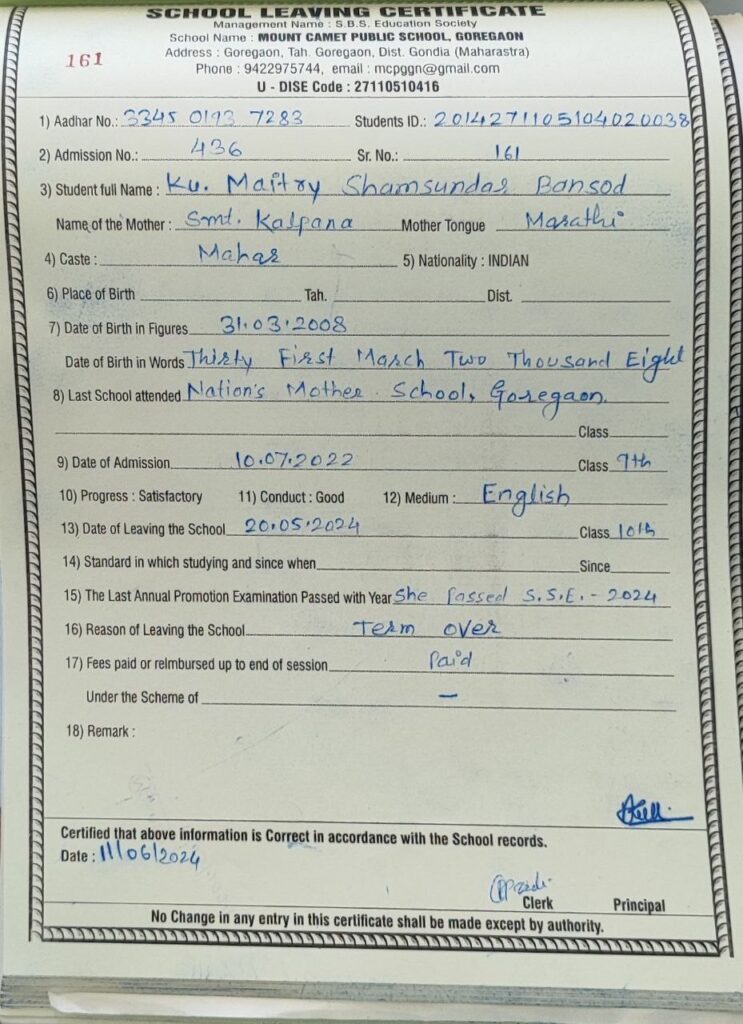 SCHOOL LEAVING CERTIFICATE
Management Name : S.B.S. Education Society
School Name : MOUNT CAMET PUBLIC SCHOOL, GOREGAON
161
Address : Goregaon, Tah. Goregaon, Dist. Gondia (Maharastra)
Phone : 9422975744, email : mcpggn@gmail.com
U - DISE Code : 27110510416
1) Aadhar No.: 3345 0193 7283 Students ID.: 2014271105104020038
2) Admission No.: 436 Sr. No.: 161
3) Student full Name : Ku. Maitry Shamsundar Bansod
Name of the Mother : Smt. Kalpana Mother Tongue Marathi
4) Caste : Mahar 5) Nationality : INDIAN
6) Place of Birth Tah. Dist.
7) Date of Birth in Figures 31.03.2008
Date of Birth in Words Thirty First March Two Thousand Eight
8) Last School attended Nation's Mother School, Goregaon.
Class
9) Date of Admission 10.07.2022 Class 9th
10) Progress : Satisfactory 11) Conduct : Good 12) Medium : English
13) Date of Leaving the School 20.05.2024 Class 10th
14) Standard in which studying and since when Since
15) The Last Annual Promotion Examination Passed with Year She Passed S.S.E. - 2024
16) Reason of Leaving the School Term over
17) Fees paid or reimbursed up to end of session Paid
Under the Scheme of —
18) Remark :
Certified that above information is Correct in accordance with the School records.
Date : 11/06/2024
Clerk Principal
No Change in any entry in this certificate shall be made except by authority.